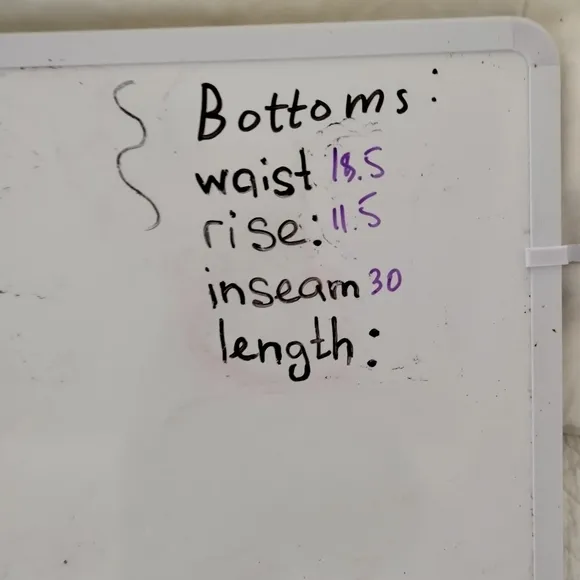 Bottoms:
waist 18.5
rise: 11.5
inseam 30
length: